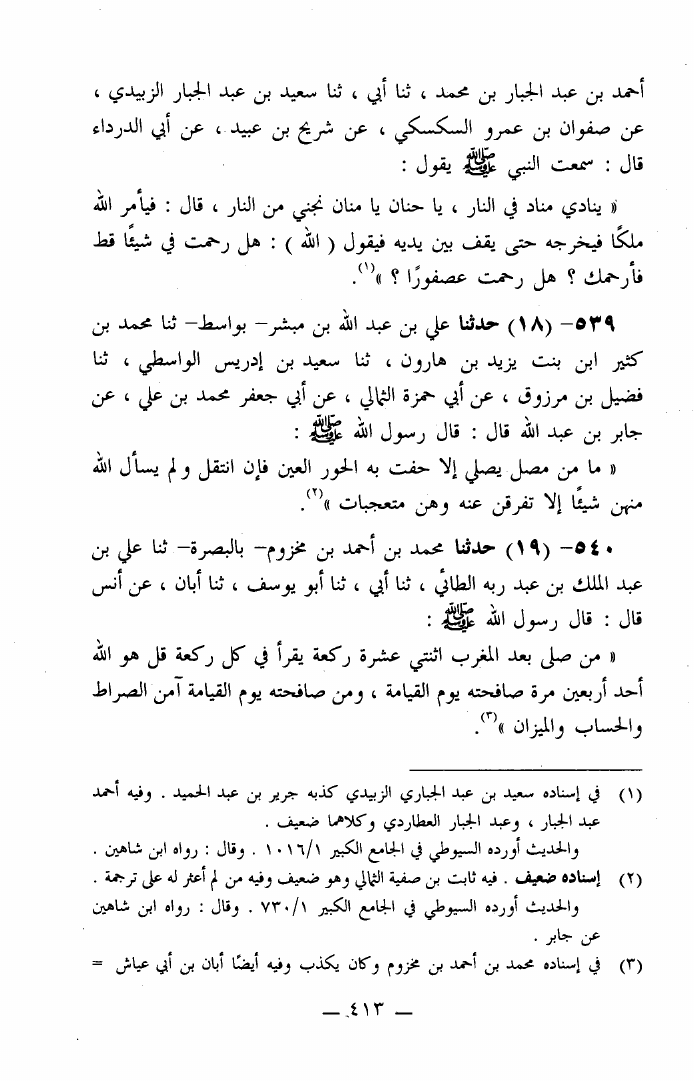 أحمد بن عبد الجبار بن محمد ، ثنا أبي ، ثنا سعيد بن عبد الجبار الزبيدي ،
عن صفوان بن عمرو السكسكي ، عن شريح بن عبيد ، عن أبي الدرداء
قال : سمعت النبي ﷺ يقول :
« ينادي مناد في النار ، يا حنان يا منان نجني من النار ، قال : فيأمر الله
ملكًا فيخرجه حتى يقف بين يديه فيقول ( الله ) : هل رحمت في شيئًا قط
فأرحمك ؟ هل رحمت عصفورًا ؟ »(١).
٥٣٩– (١٨) حدثنا علي بن عبد الله بن مبشر– بواسط– ثنا محمد بن
كثير ابن بنت يزيد بن هارون ، ثنا سعيد بن إدريس الواسطي ، ثنا
فضيل بن مرزوق ، عن أبي حمزة الثمالي ، عن أبي جعفر محمد بن علي ، عن
جابر بن عبد الله قال : قال رسول الله ﷺ :
« ما من مصل يصلي إلا حفت به الحور العين فإن انتقل ولم يسأل الله
منهن شيئًا إلا تفرقن عنه وهن متعجبات »(٢).
٥٤٠– (١٩) حدثنا محمد بن أحمد بن مخزوم– بالبصرة– ثنا علي بن
عبد الملك بن عبد ربه الطائي ، ثنا أبي ، ثنا أبو يوسف ، ثنا أبان ، عن أنس
قال : قال رسول الله ﷺ :
« من صلى بعد المغرب اثنتي عشرة ركعة يقرأ في كل ركعة قل هو الله
أحد أربعين مرة صافحته يوم القيامة ، ومن صافحته يوم القيامة آمن الصراط
والحساب والميزان »(٣).
(١) في إسناده سعيد بن عبد الجباري الزبيدي كذبه جرير بن عبد الحميد . وفيه أحمد
عبد الجبار ، وعبد الجبار العطاردي وكلاهما ضعيف .
والحديث أورده السيوطي في الجامع الكبير ١٠١٦/١ . وقال : رواه ابن شاهين .
(٢) إسناده ضعيف . فيه ثابت بن صفية الثمالي وهو ضعيف وفيه من لم أعثر له على ترجمة .
والحديث أورده السيوطي في الجامع الكبير ٧٣٠/١ . وقال : رواه ابن شاهين
عن جابر .
(٣) في إسناده محمد بن أحمد بن مخزوم وكان يكذب وفيه أيضًا أبان بن أبي عياش =
— ٤١٣ —